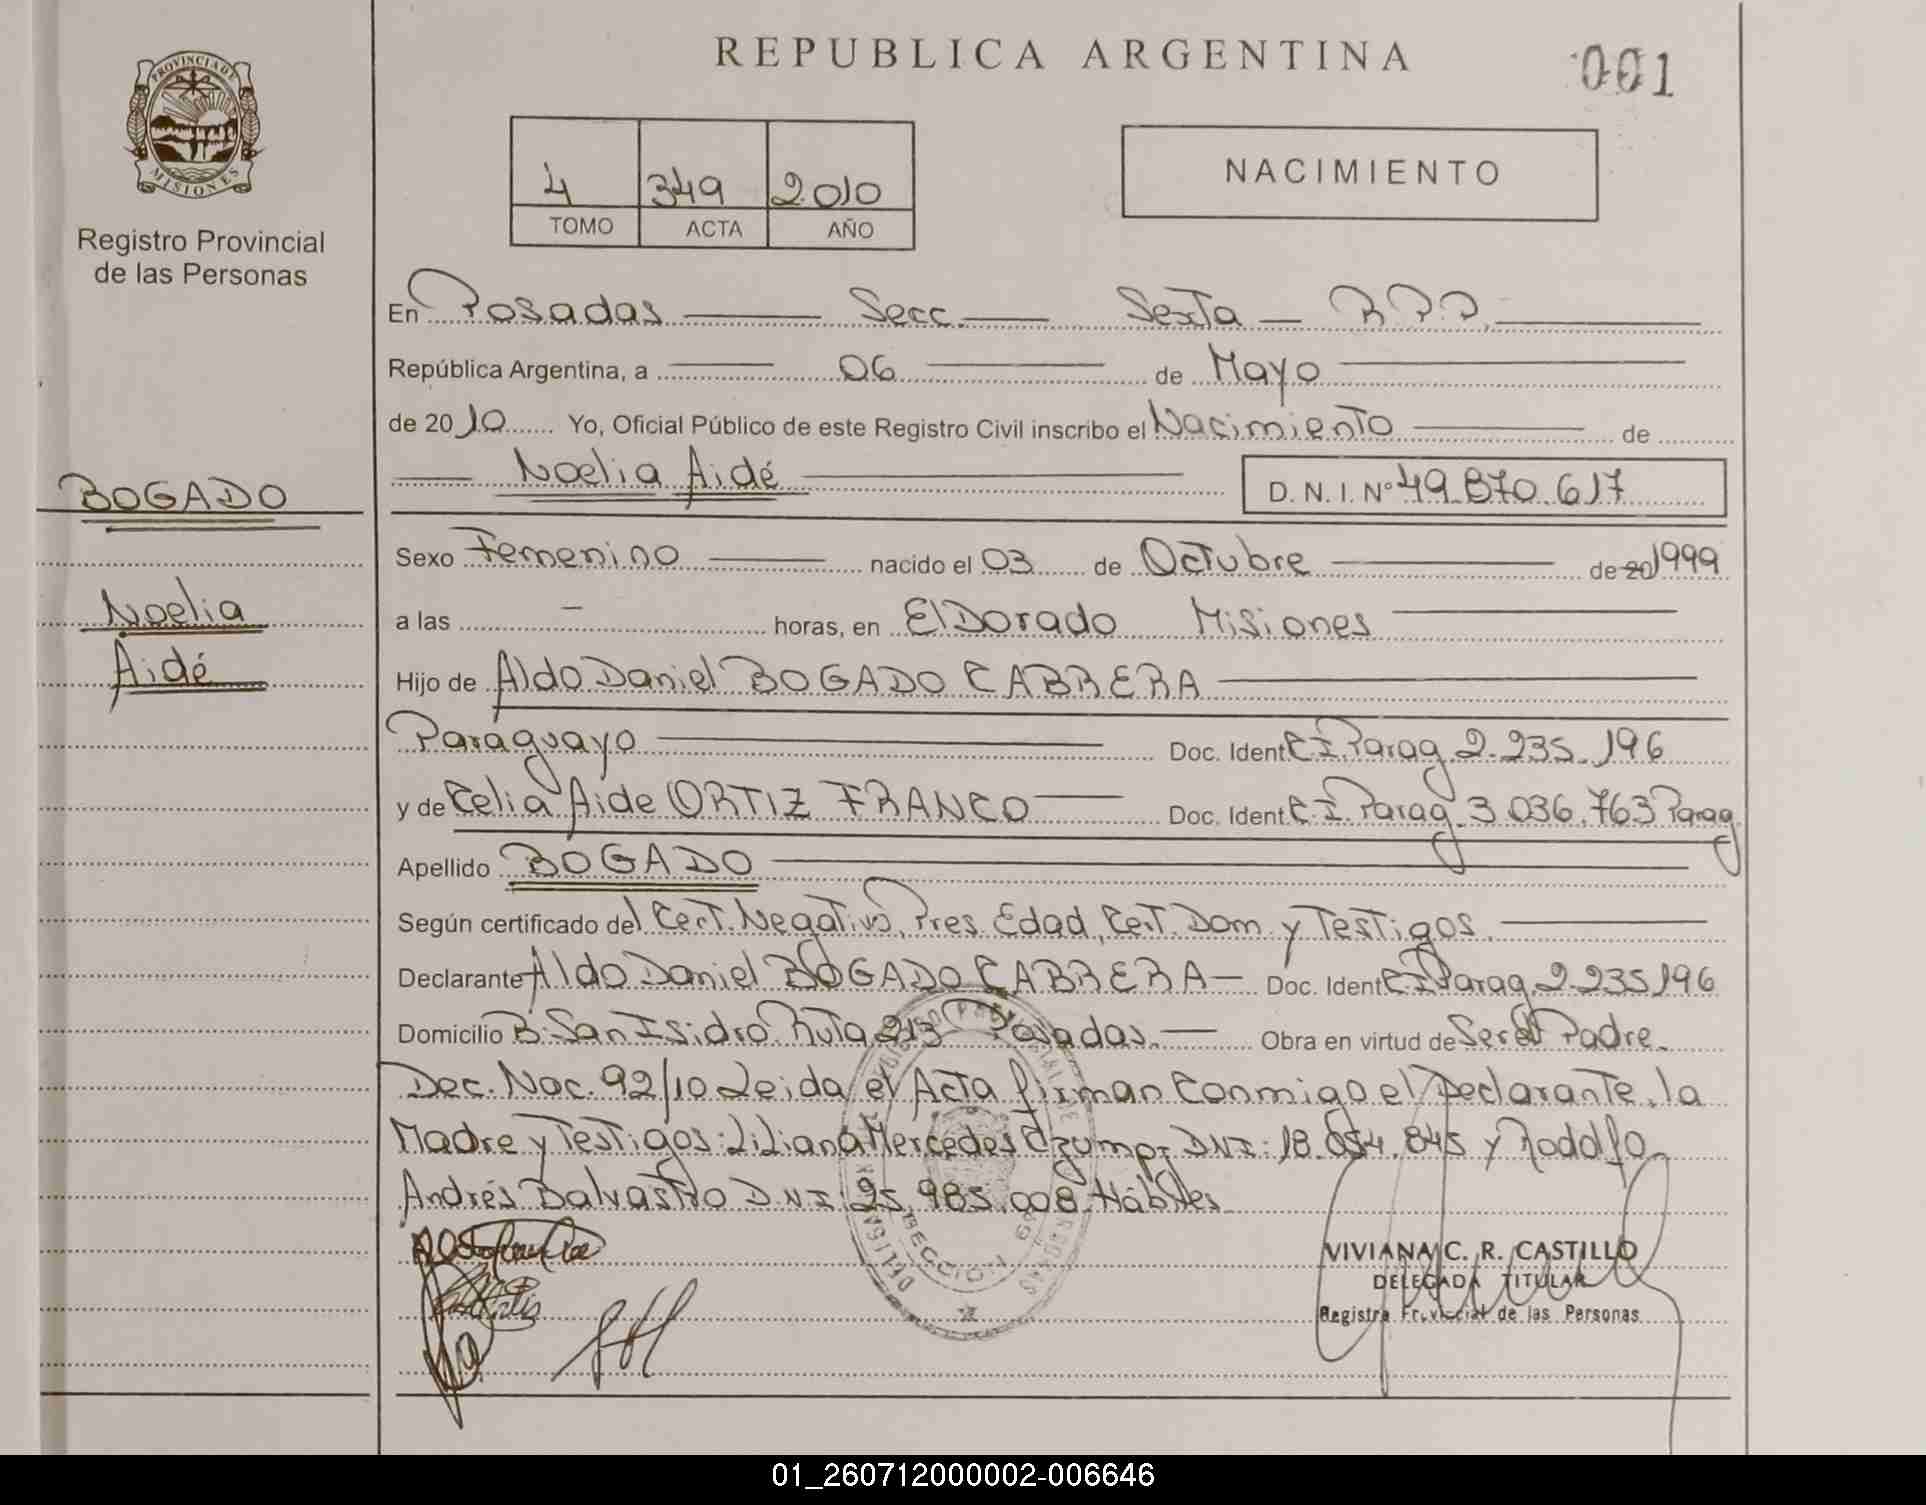 REPUBLICA ARGENTINA
001
PROVINCIA DE
MISIONES
Registro Provincial
de las Personas
4 349 2010
TOMO ACTA AÑO
NACIMIENTO
En Posadas Secc. Sexta R.P.P.
República Argentina, a 06 de Mayo
de 2010 Yo, Oficial Público de este Registro Civil inscribo el Nacimiento de
Noelia Aidé D. N. I. Nº 49.870.617
BOGADO
Noelia
Aidé
Sexo Femenino nacido el 03 de Octubre de 20 1999
a las - horas, en ElDorado Misiones
Hijo de Aldo Daniel BOGADO CABRERA
Paraguayo Doc. Ident. C.I. Parag. 2.235.196
y de Celia Aide ORTIZ FRANCO Doc. Ident. C.I. Parag. 3.036.763 Parag
Apellido BOGADO
Según certificado del Cert. Negativo, Pres. Edad, Cert. Dom y Testigos.
Declarante Aldo Daniel BOGADO CABRERA Doc. Ident. C.I Parag. 2.235196
Domicilio B. San Isidro Ruta 213 Posadas. Obra en virtud de Ser el Padre.
Dec. Nac. 92/10 Leida el Acta firman conmigo el Declarante, la
Madre y Testigos: Liliana Mercedes DNI: 18.054.845 y Rodolfo
Andrés Balvastro D.N.I: 25.985.008 Hábiles
VIVIANA C. R. CASTILLO
DELEGADA TITULAR
Registro Provincial de las Personas
01_260712000002-006646